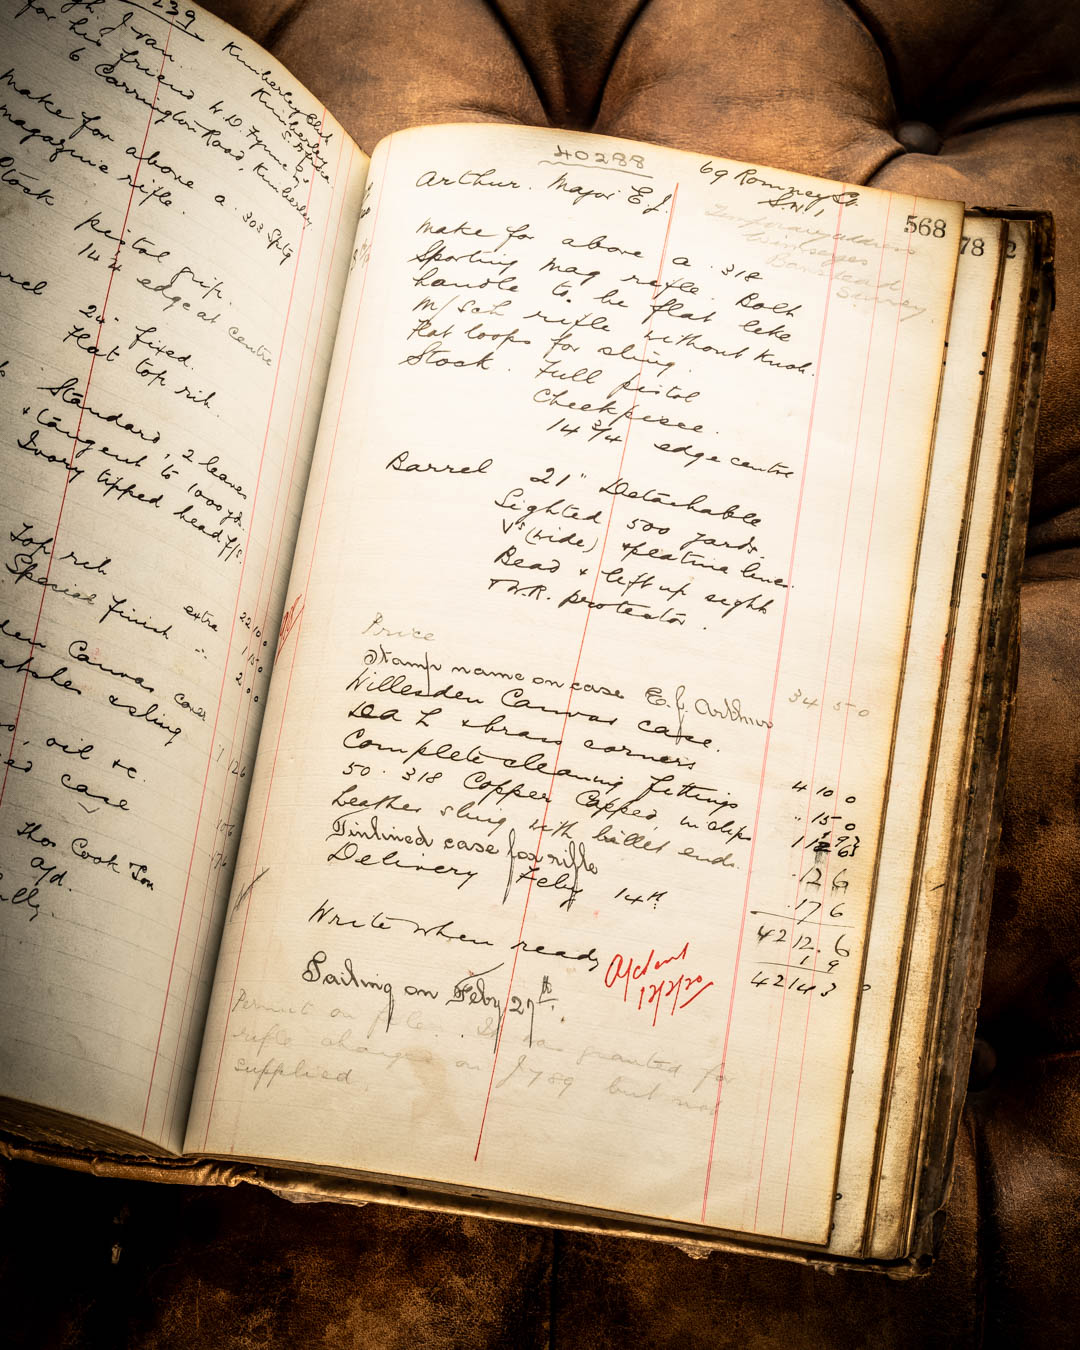 239
Kimberley Club
Kimberley
S. Africa
for his friend W. D. Fynn
6 Carrington Road, Kimberley.
Make for above a .303 Sptg
magazine rifle.
Stock pistol grip.
14 1/4 edge at centre
24" fixed.
Flat top rib.
Standard, 2 leaves
& tangent to 1000 yds.
Ivory tipped bead f/s.
Top rib extra 22 10 0
Special finish " 1 15 0
2 0 0
Canvas cover
& sling 1 12 6
oil &c. 10 6
case 7 6
Thos Cook & Son
a/d.
40288
69 Romney St.
S.W.1
Arthur. Major E. J.
568
78
2
Temporary address
Banstead
Surrey.
Make for above a .318
Sporting mag rifle. Bolt
handle to be flat like
M/Sch rifle without knob.
Flat loops for sling.
Stock. Full pistol
Cheekpiece.
14 3/4 edge centre
Barrel 21" Detachable
Sighted 500 yards.
Vs (wide) & platina line.
Bead & lift up sight
& W.R. protector.
Price 34 5 0
Stamp name on case E. J. Arthur
Willesden Canvas case.
D a L & brass corners 4 10 0
Complete cleaning fittings " 15 0
50 .318 Copper Capped in clips
Leather sling with billet ends. 12 6
Tinlined case for rifle 17 6
Delivery Feby 14th.
42 12 6
1 9
42 14 3
Write when ready
12/2/20
Sailing on Feby 27th.
Permit on file. It was granted for
rifle charged on J789 but not
supplied.